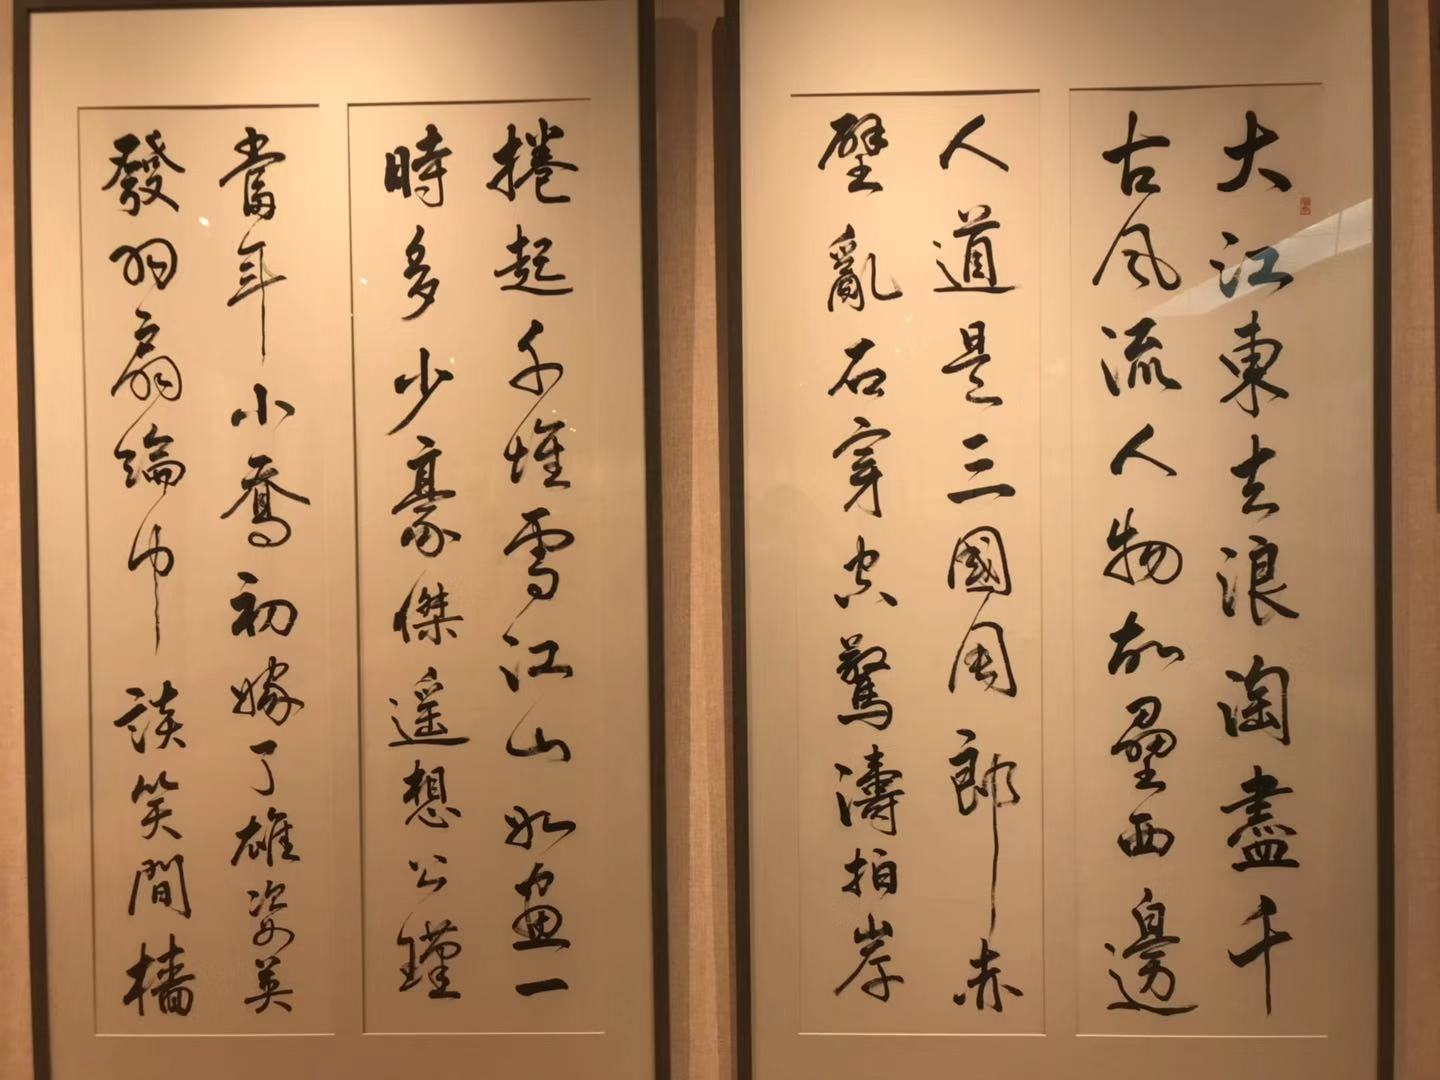 大江東去浪淘盡千
古風流人物故壘西邊
人道是三國周郎赤
壁亂石穿空驚濤拍岸
捲起千堆雪江山如畫一
時多少豪傑遥想公瑾
當年小喬初嫁了雄姿英
發羽扇綸巾談笑間檣